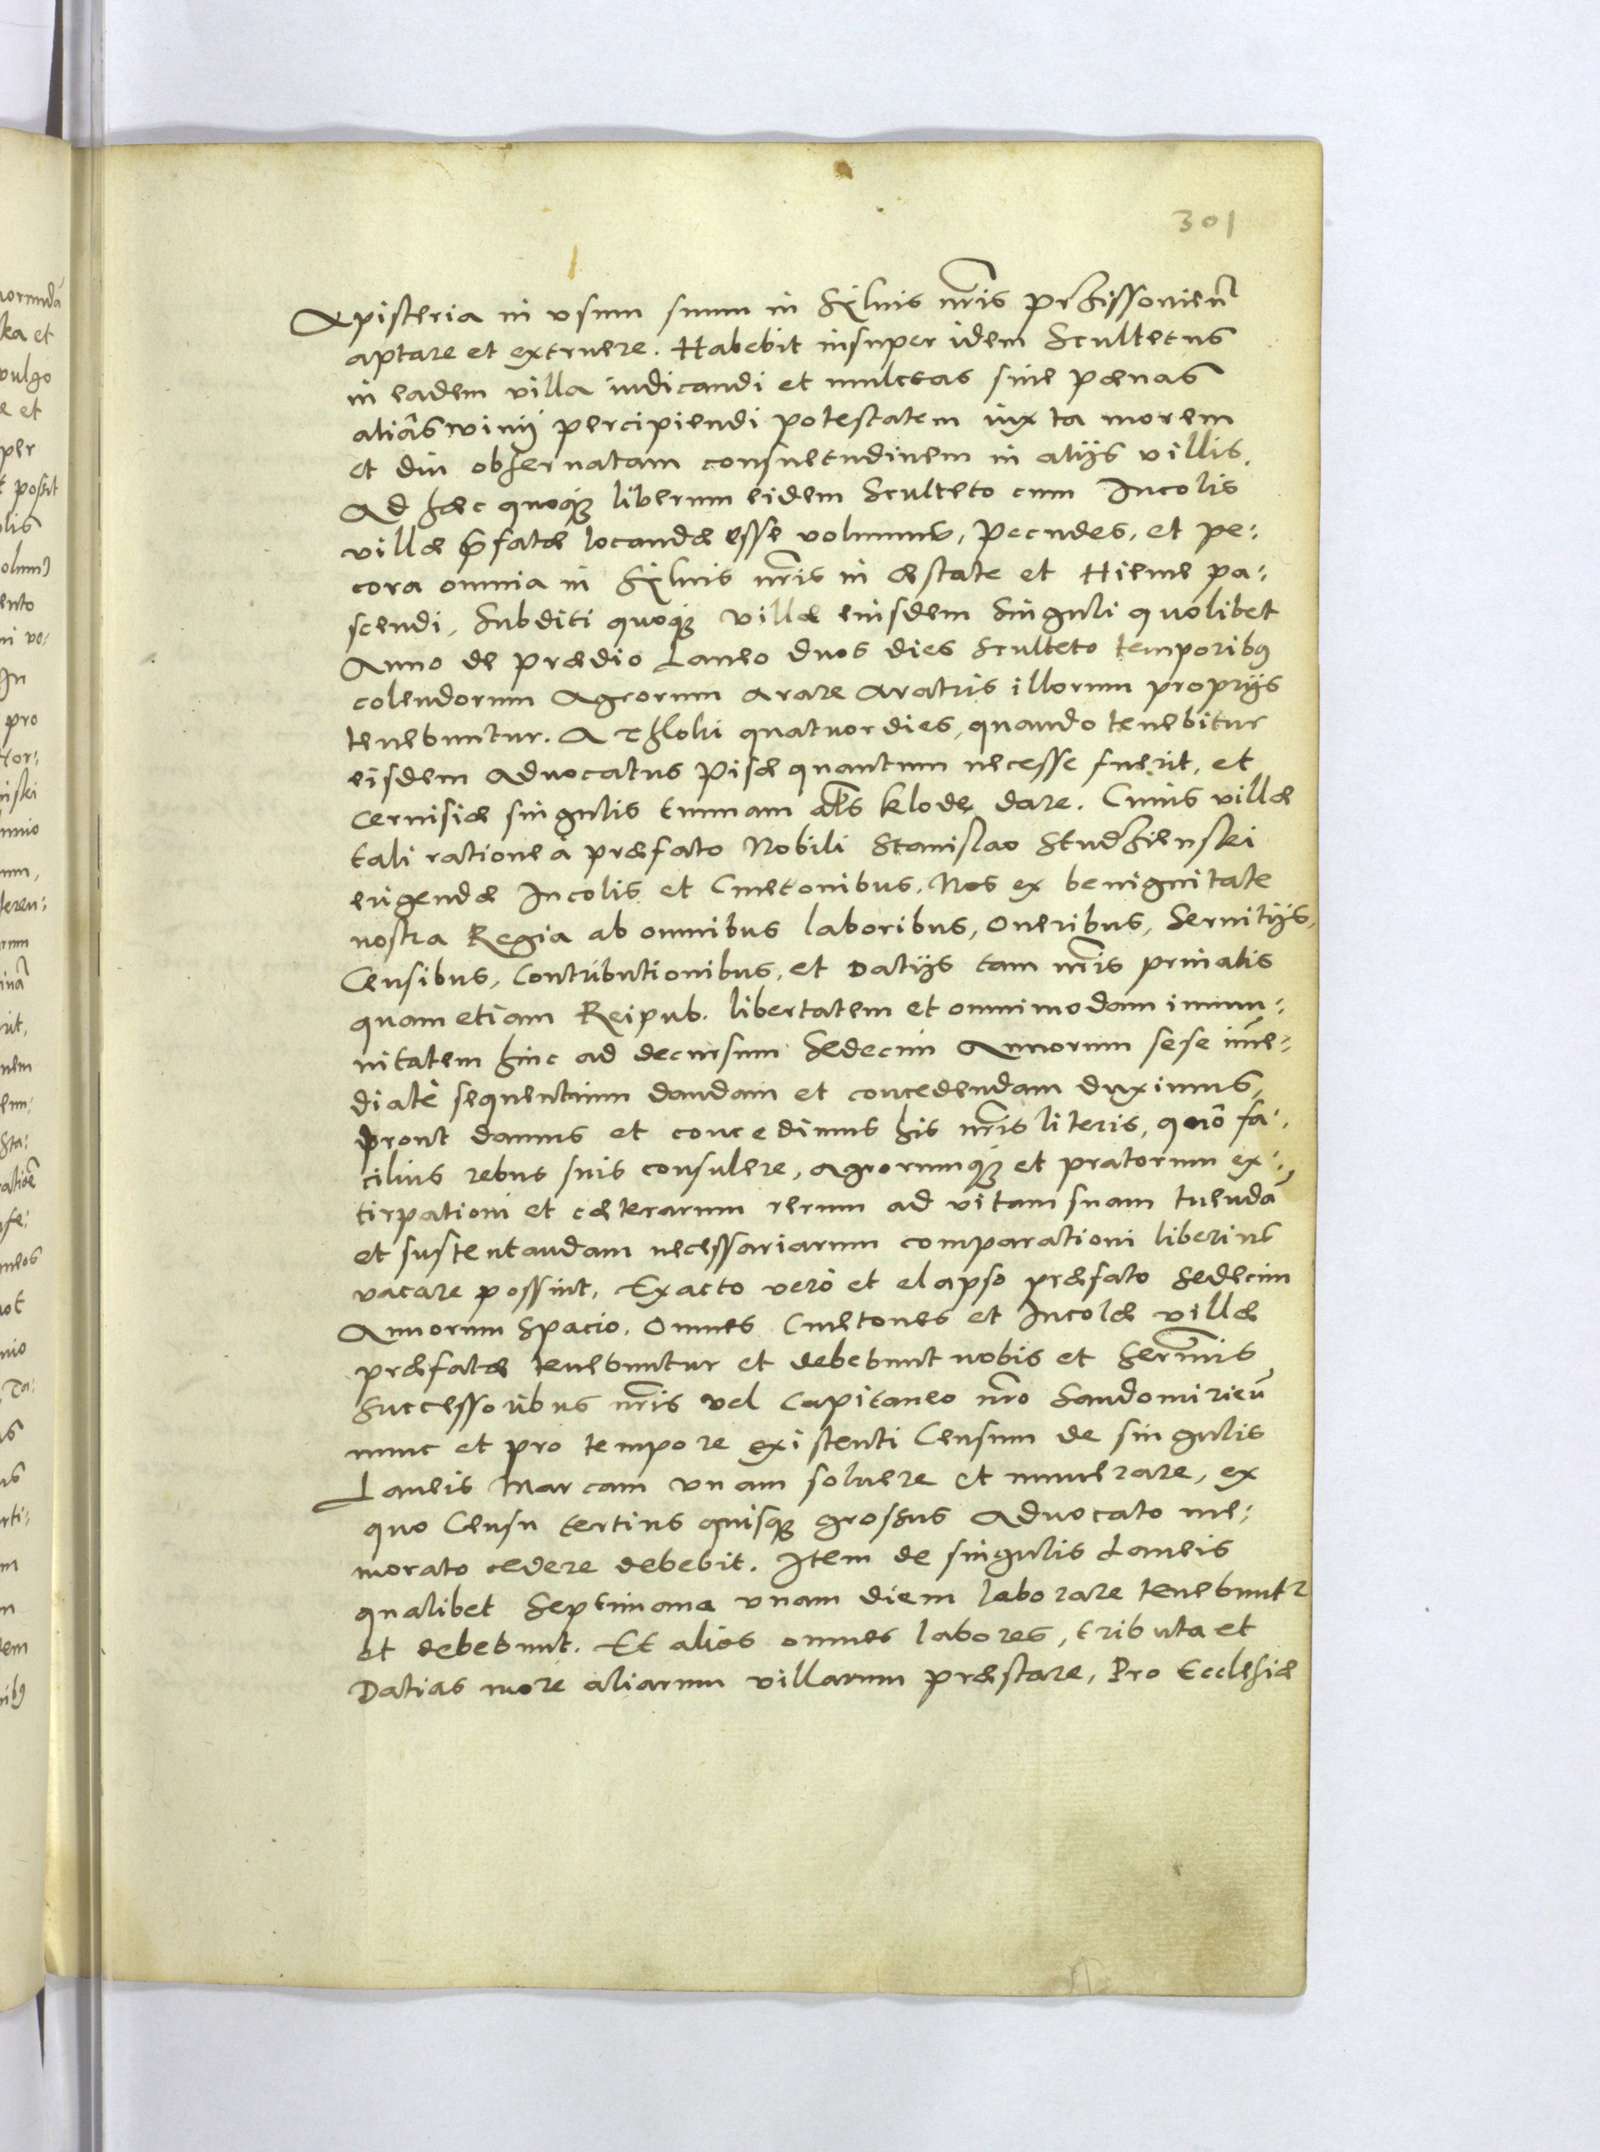 301
Apisteria in vsum suum in Sÿluis nr̃is przissouień
aptare et extruere. Habebit insuper idem Scultetus
in eadem villa iudicandi et mulctas siue pœnas
aliàs winÿ percipiendi potestatem iuxta morem
et diu obseruatam consuetudinem in alijs villis.
Ad hæc quoq3 liberum eidem Sculteto cum Incolis
villæ p̃fatæ locandæ esse volumus, Pecudes, et pe:
cora omnia in Sÿluis nr̃is in æstate et Hieme pa:
scendi, Subditi quoq3 villæ eiusdem Singuli quolibet
Anno de prædio Laneo duos dies Sculteto temporibꝯ
colendorum Agrorum arare aratris illorum proprijs
tenebuntur. A Thloki quatuor dies, quando tenebitur
eisdem Aduocatus Pisæ quantum necesse fuerit, et
Ceruisiæ singulis tunnam al̃s klodę dare. Cuius villæ
tali ratione à præfato Nobili Stanislao Studzienski
erigendæ Incolis et Cmetonibus. Nos ex benignitate
nostra Regia ab omnibus laboribus, Oneribus, Seruitijs,
Censibus, Contributionibus, et Datijs tam nr̃is priuatis
quam etiam Reipub. libertatem et omnimodam immu:
nitatem hinc ad decursum Sedecim Annorum sese im̃e:
diatè sequentium dandam et concedendam duximus,
prout damus et concedimus his nr̃is literis, quo fa:
cilius rebus suis consulere, agrorumq3 et pratorum ex:
tirpationi et cæterarum rerum ad vitam suam tuendā
et sustentandam necessariarum comparationi liberius
vacare possint, Exacto verò et elapso præfato Sedecim
Annorum Spacio. Omnes Cmetones et Incolæ villæ
præfatæ tenebuntur et debebunt nobis et Serm̃is
Successoribus nr̃is vel Capitaneo nr̃o Sandomirień
nunc et pro tempore existenti Censum de singulis
Laneis Marcam vnam soluere et numerare, ex
quo Censu tertius quisq3 grossus Aduocato me:
morato cedere debebit. Item de singulis Laneis
qualibet Septimana vnam diem laborare tenebuntr
et debebunt. Et alios omnes labores, tributa et
Datias more aliarum villarum præstare, Pro Ecclesiæ